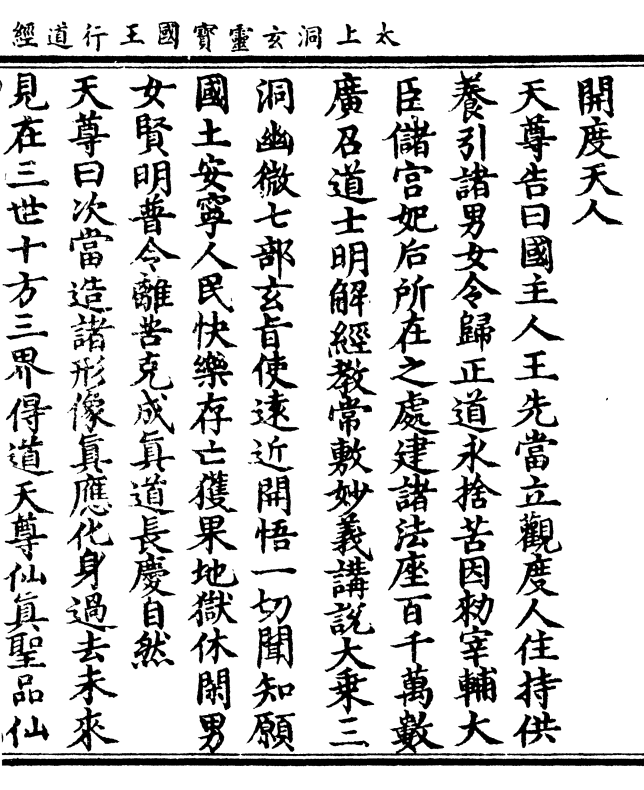 太上洞玄靈寶國王行道經
開度天人
天尊告曰國主人王先當立觀度人住持供
養引諸男女令歸正道永捨苦因勑宰輔大
臣儲宫妃后所在之處建諸法座一百千萬數
廣召道士明解經教常敷妙義講說大乘三
洞幽微七部玄旨使遠近開悟一切聞知願
國土安寧人民快樂存亡獲果地獄休閑男
女賢明普令離苦克成真道長慶自然
天尊曰次當造諸形像真應化身過去未來
見在三世十方三界得道天尊仙真聖品仙